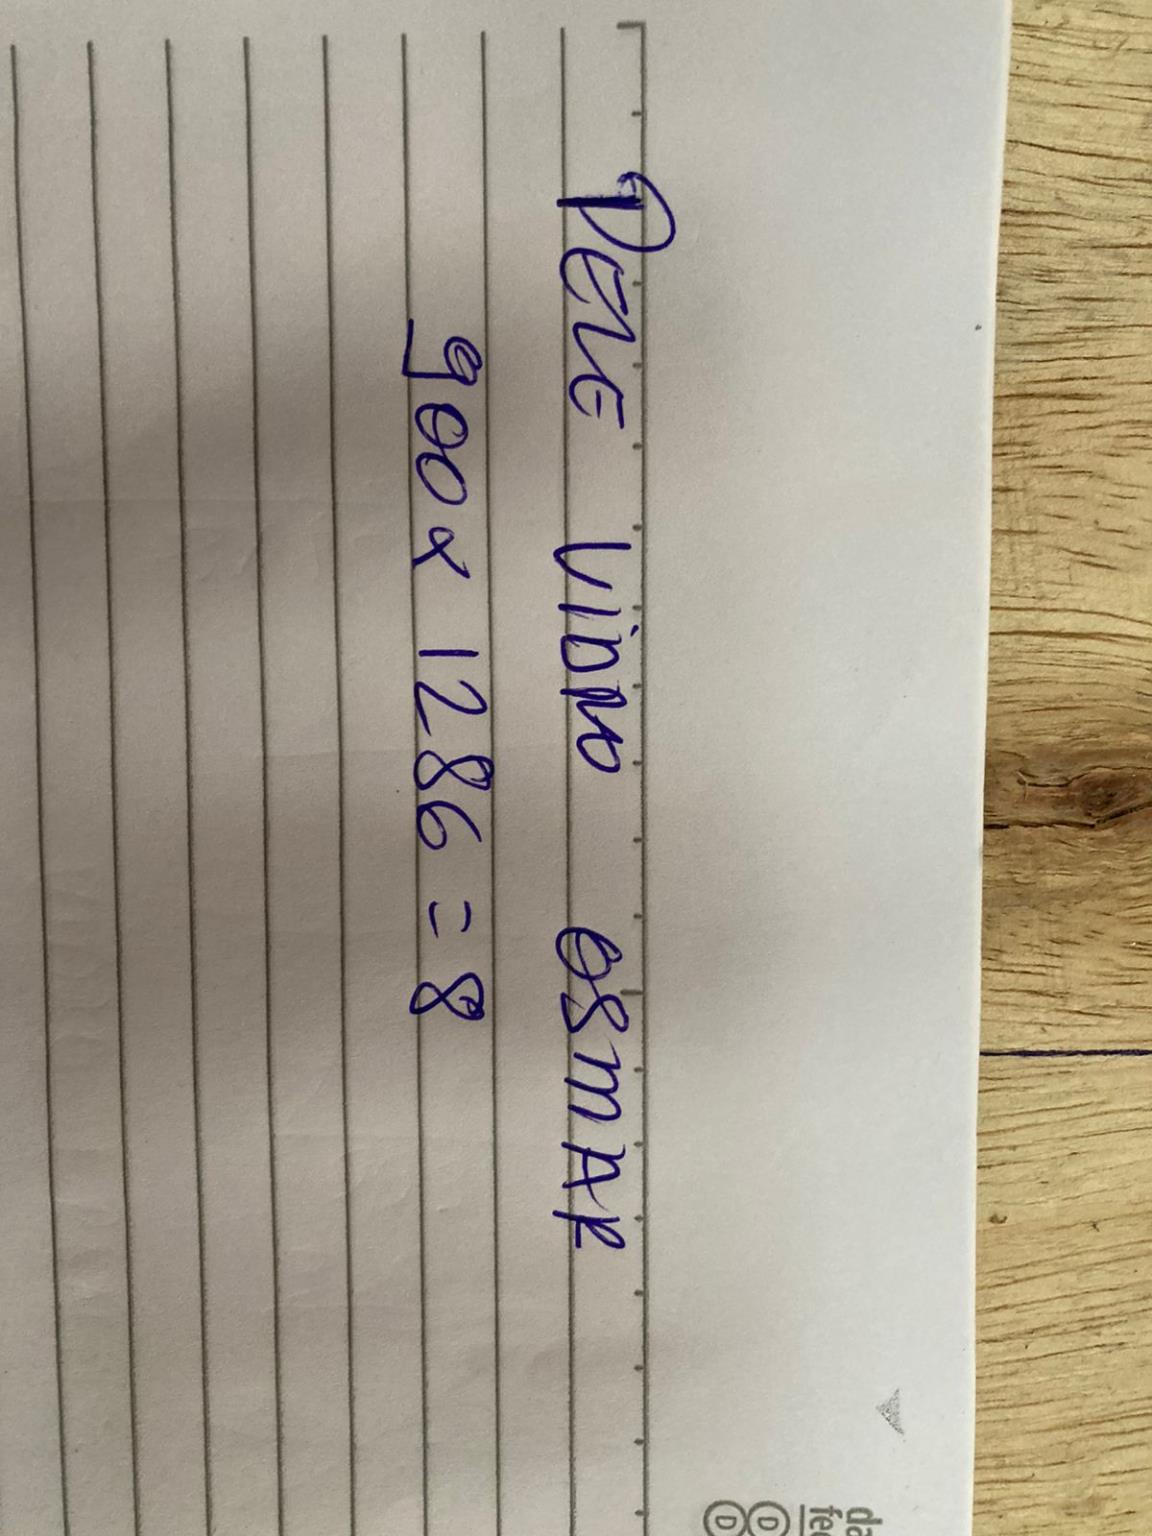 PELE VIDRO OSMAR
900 x 1286 = 8
da
fec
D D